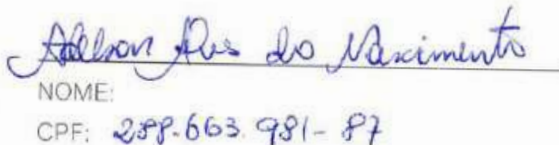 Adelson Alves do Nascimento
NOME:
CPF: 288.663.981-87